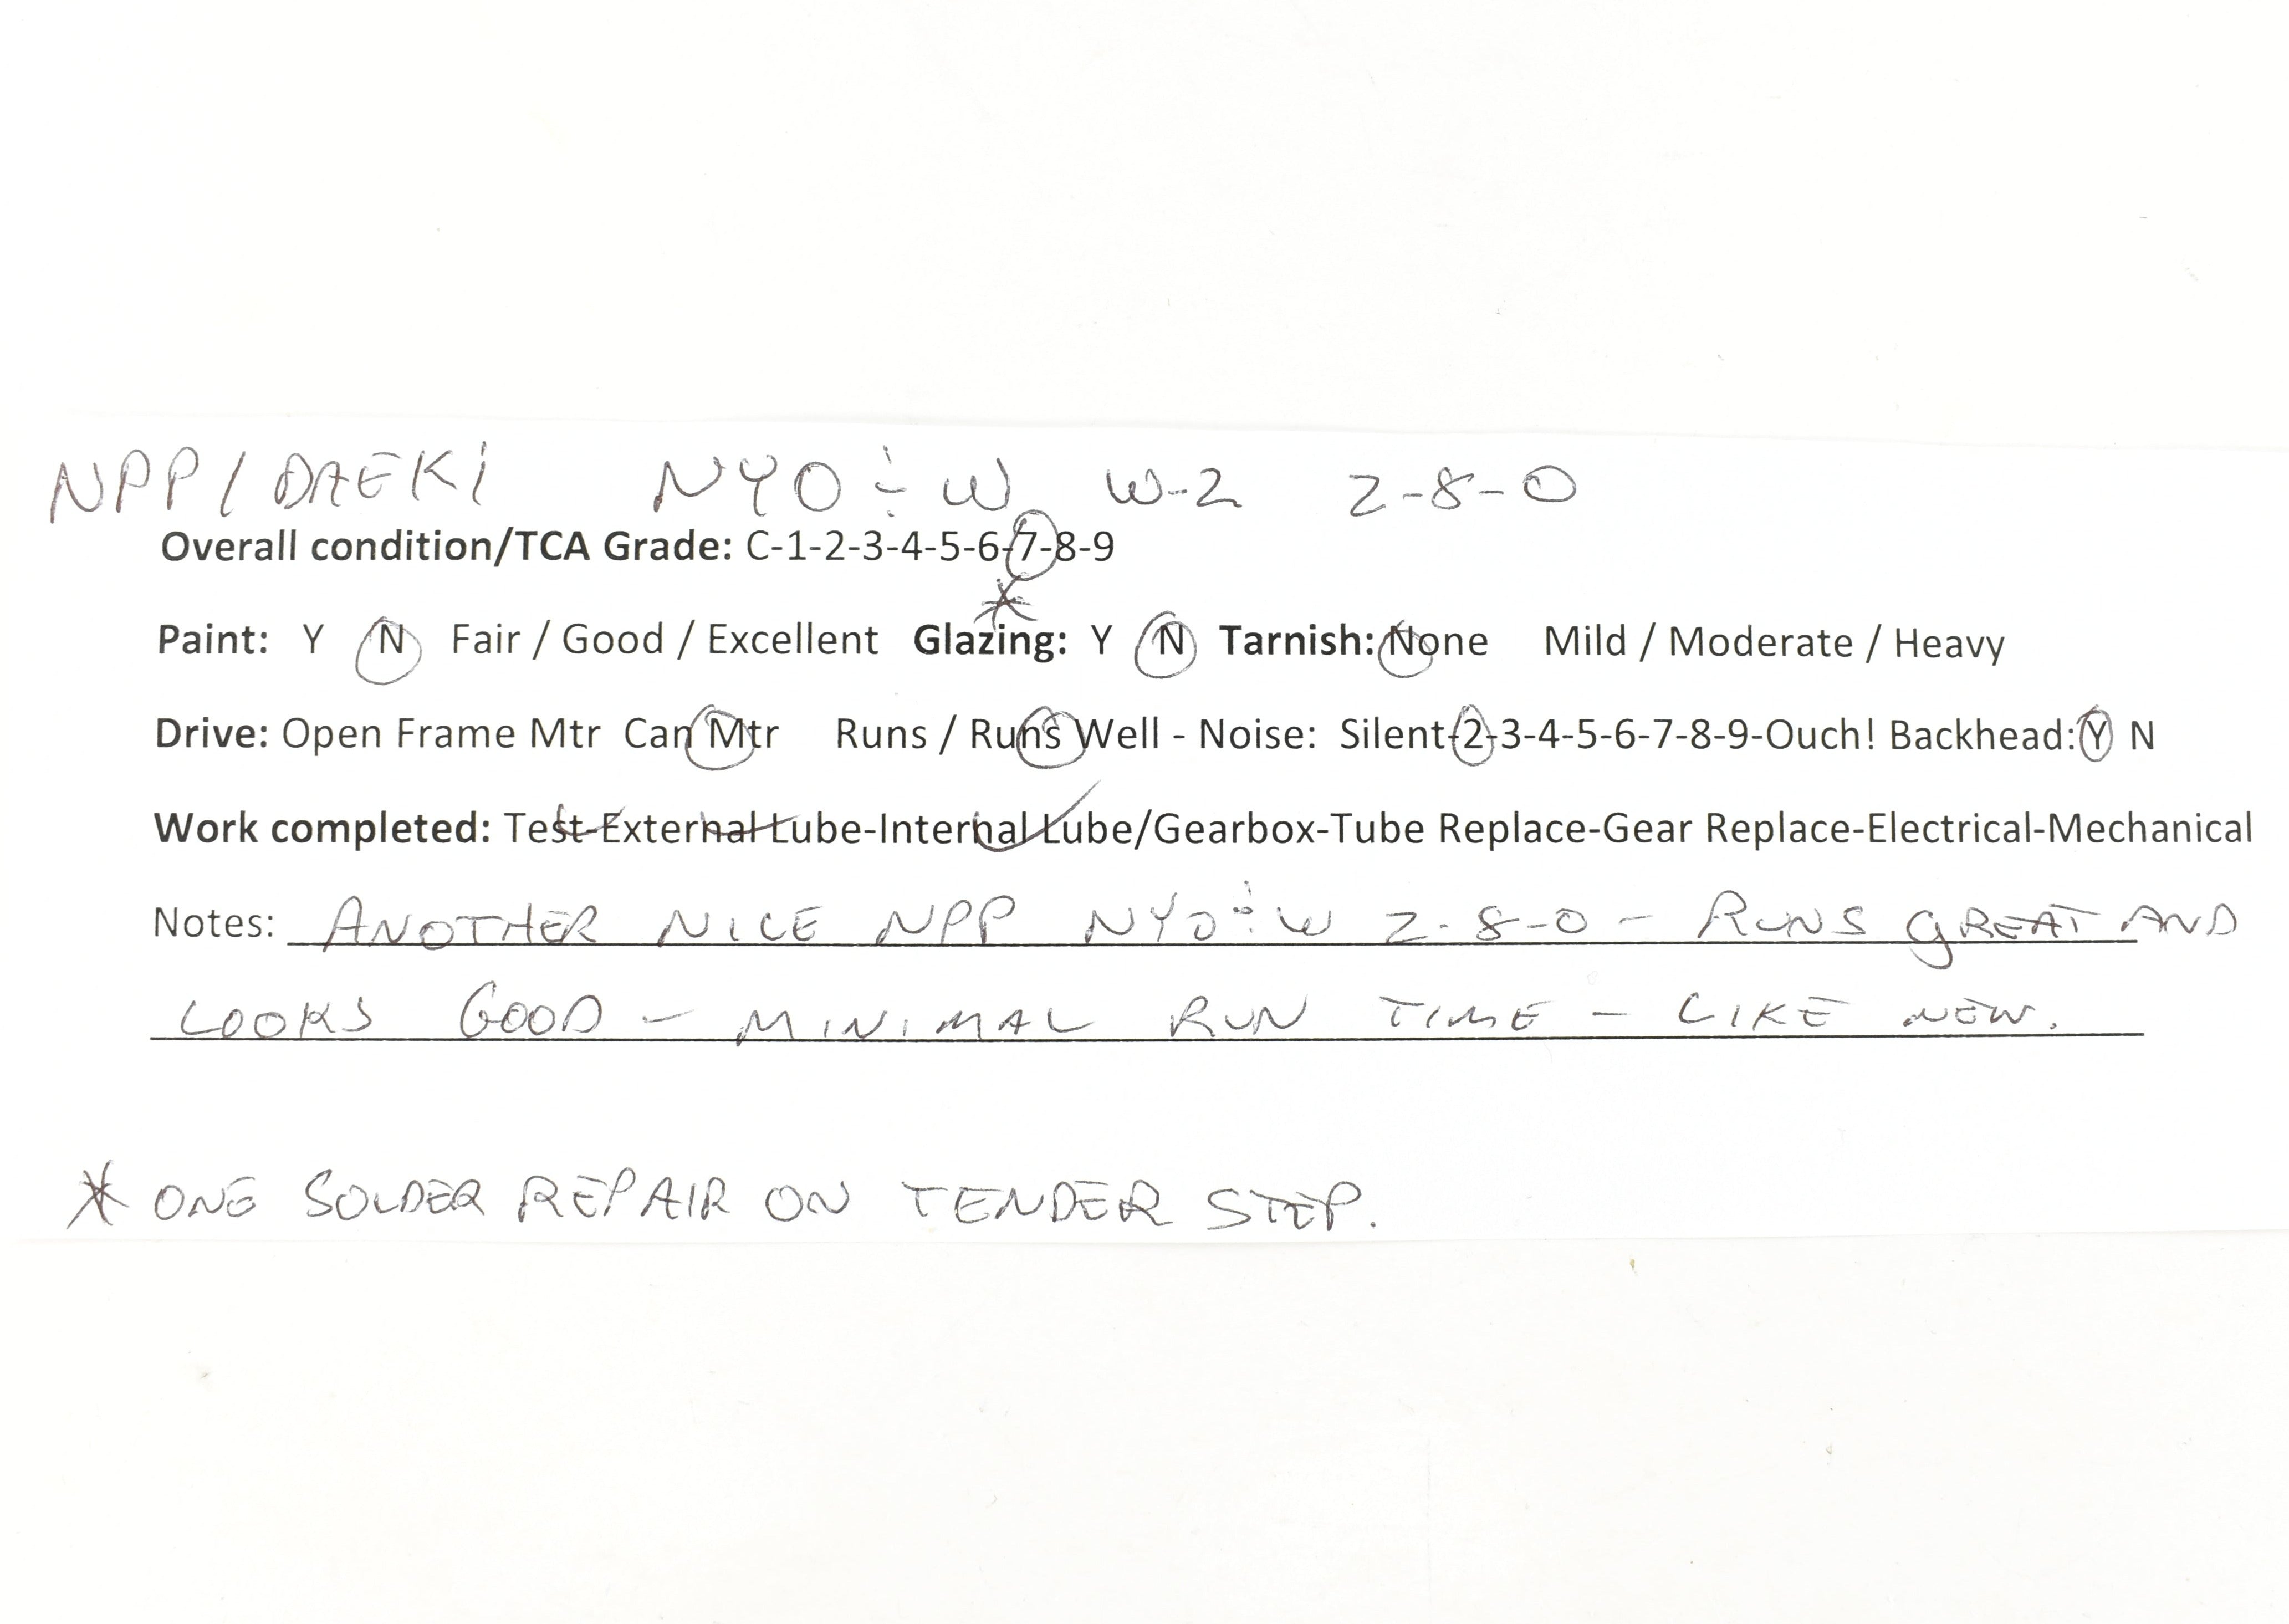 NPP/DAEKI NYO÷W W-2 2-8-0
Overall condition/TCA Grade: C-1-2-3-4-5-6-7-8-9
*
Paint: Y N Fair / Good / Excellent Glazing: Y N Tarnish: None Mild / Moderate / Heavy
Drive: Open Frame Mtr Can Mtr Runs / Runs Well - Noise: Silent-2-3-4-5-6-7-8-9-Ouch! Backhead: Y N
Work completed: Test-External Lube-Internal Lube/Gearbox-Tube Replace-Gear Replace-Electrical-Mechanical
Notes: ANOTHER NICE NPP NYO÷W 2-8-0 - RUNS GREAT AND
LOOKS GOOD - MINIMAL RUN TIME - LIKE NEW.
* ONE SOLDER REPAIR ON TENDER STEP.